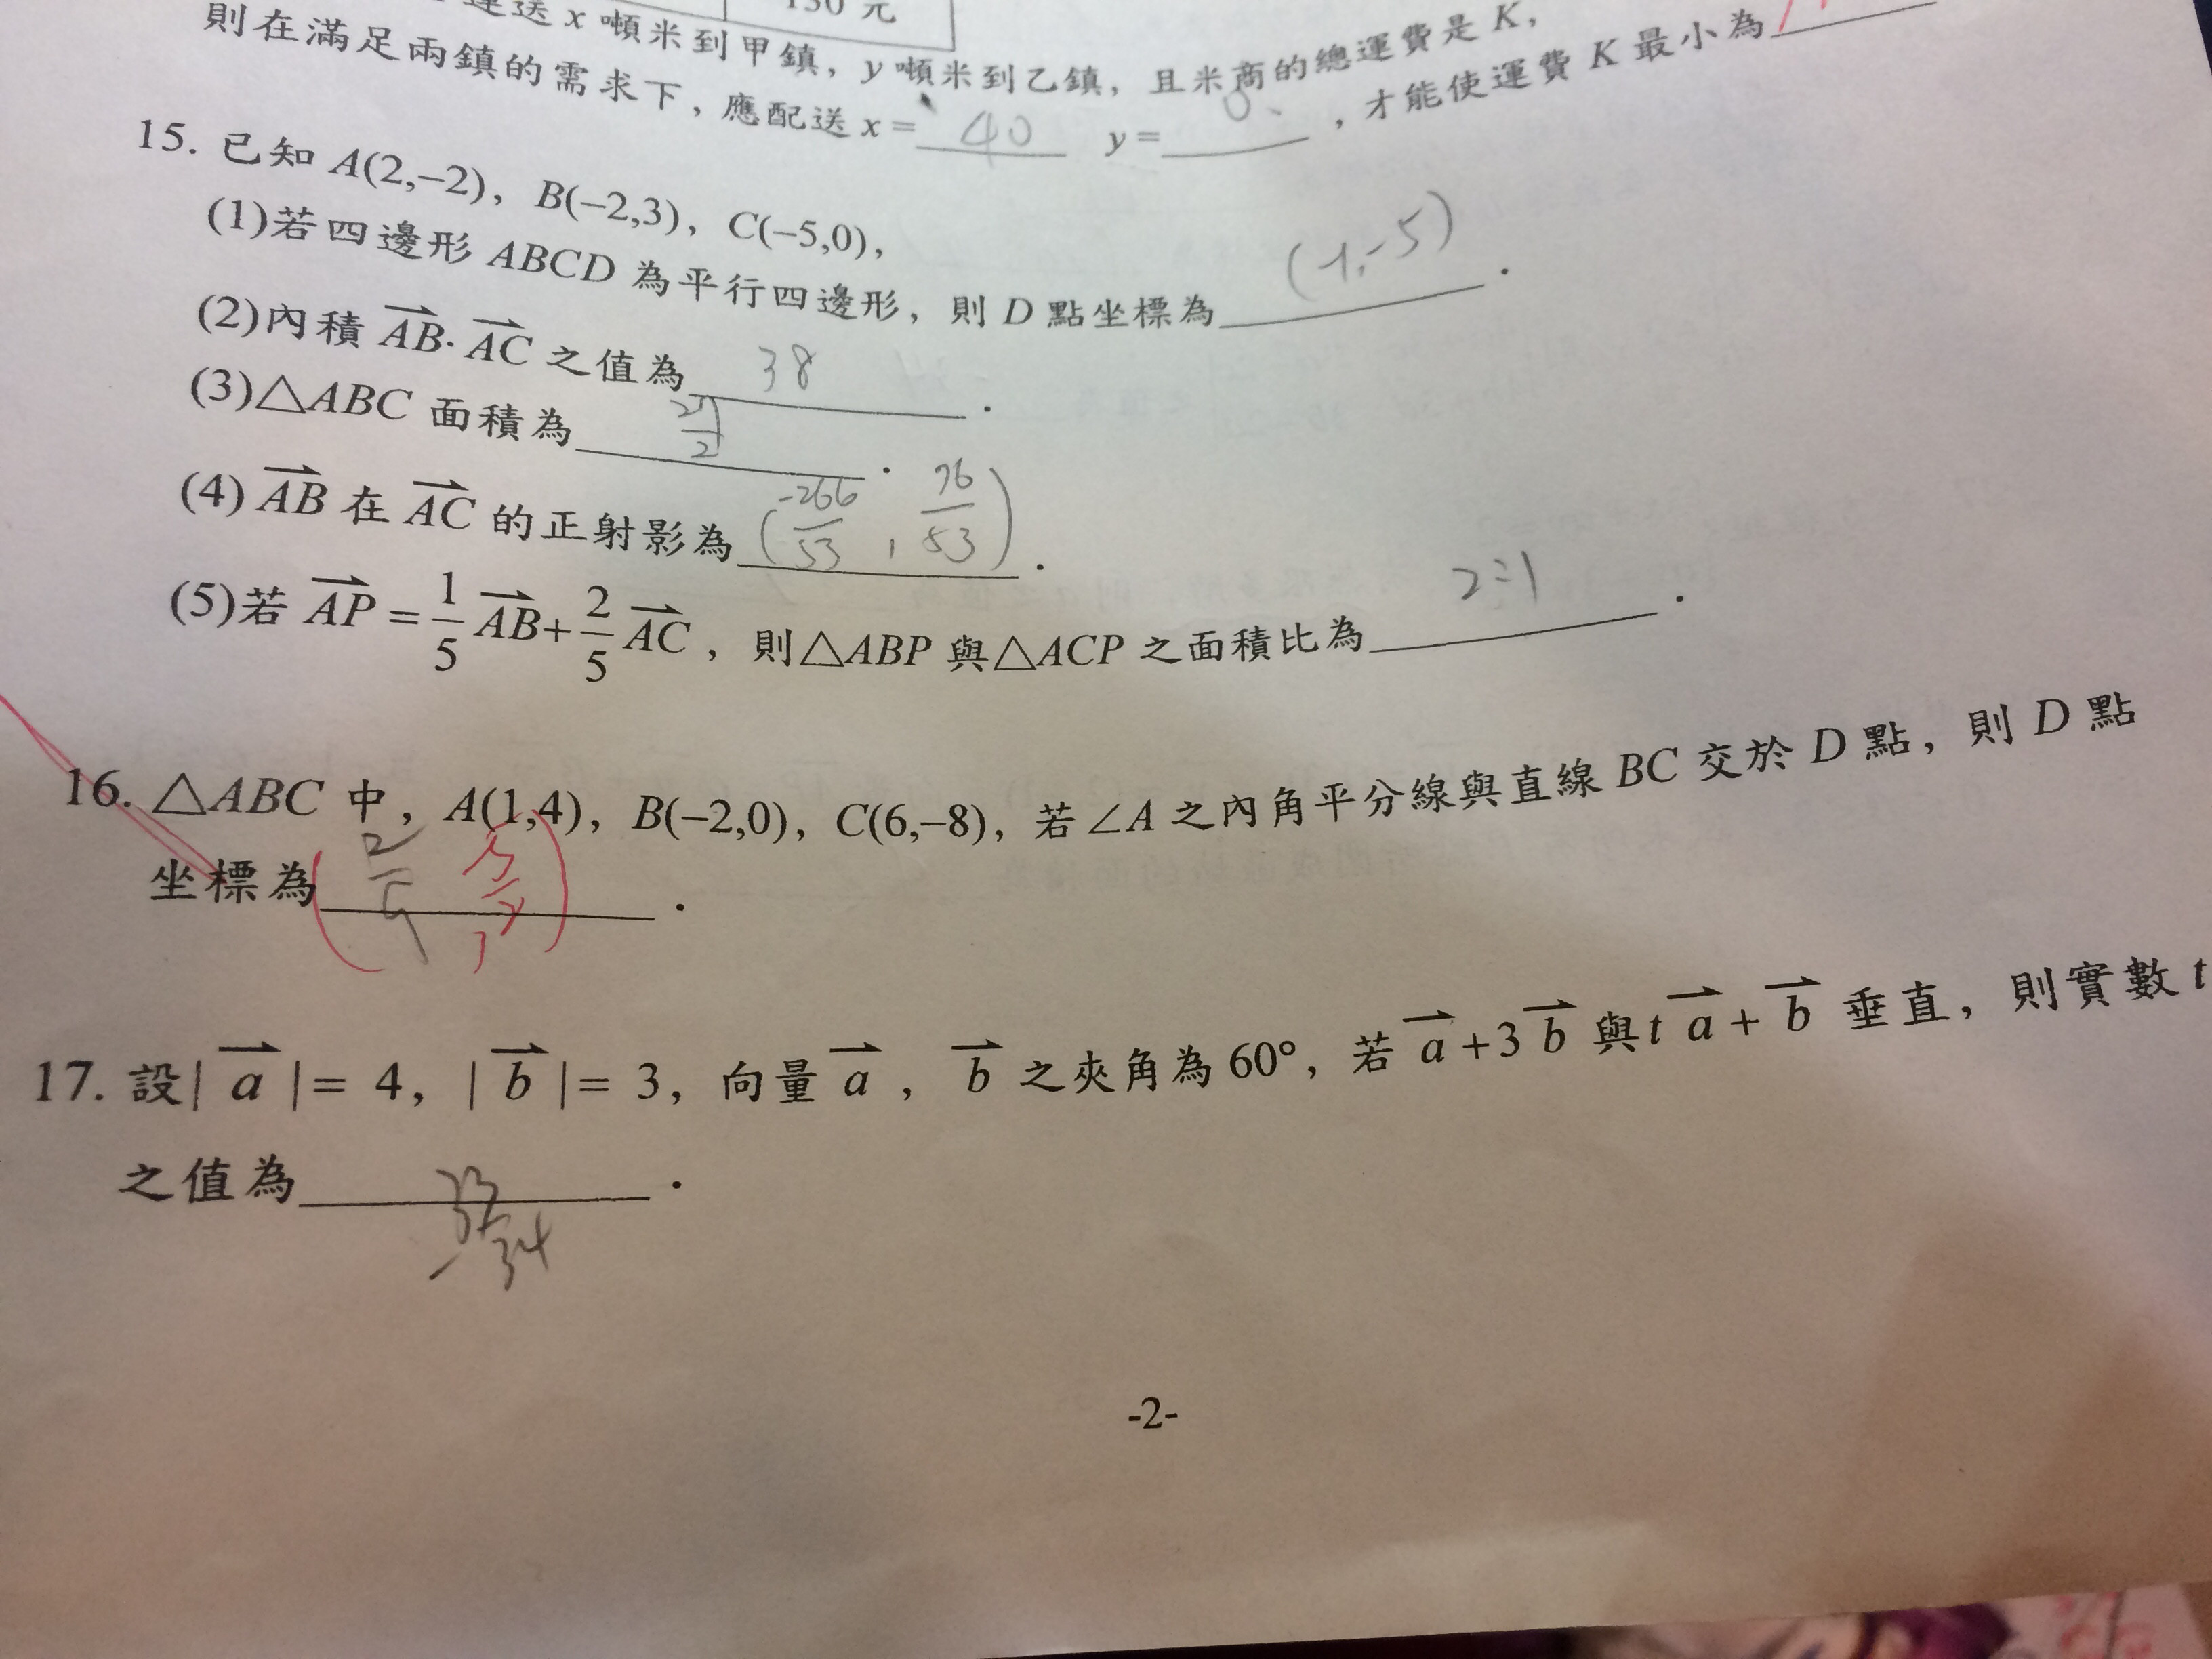 130 元
運送 x 噸米到甲鎮，y 噸米到乙鎮，且米商的總運費是 K，
則在滿足兩鎮的需求下，應配送 x = 40 y = 0 ，才能使運費 K 最小為
15. 已知 A(2,–2)，B(–2,3)，C(–5,0)，
(1)若四邊形 ABCD 為平行四邊形，則 D 點坐標為 (-1,-5) .
(2)內積 AB · AC 之值為 38 .
(3)△ABC 面積為 27/2 .
(4) AB 在 AC 的正射影為 (-266/53 , 76/53) .
(5)若 AP = 1/5 AB + 2/5 AC ，則△ABP 與△ACP 之面積比為 2:1 .
16. △ABC 中，A(1,4)，B(–2,0)，C(6,–8)，若∠A 之內角平分線與直線 BC 交於 D 點，則 D 點
坐標為 .
17. 設| a |= 4，| b |= 3，向量 a ， b 之夾角為 60°，若 a +3 b 與 t a + b 垂直，則實數 t
之值為 .
-2-